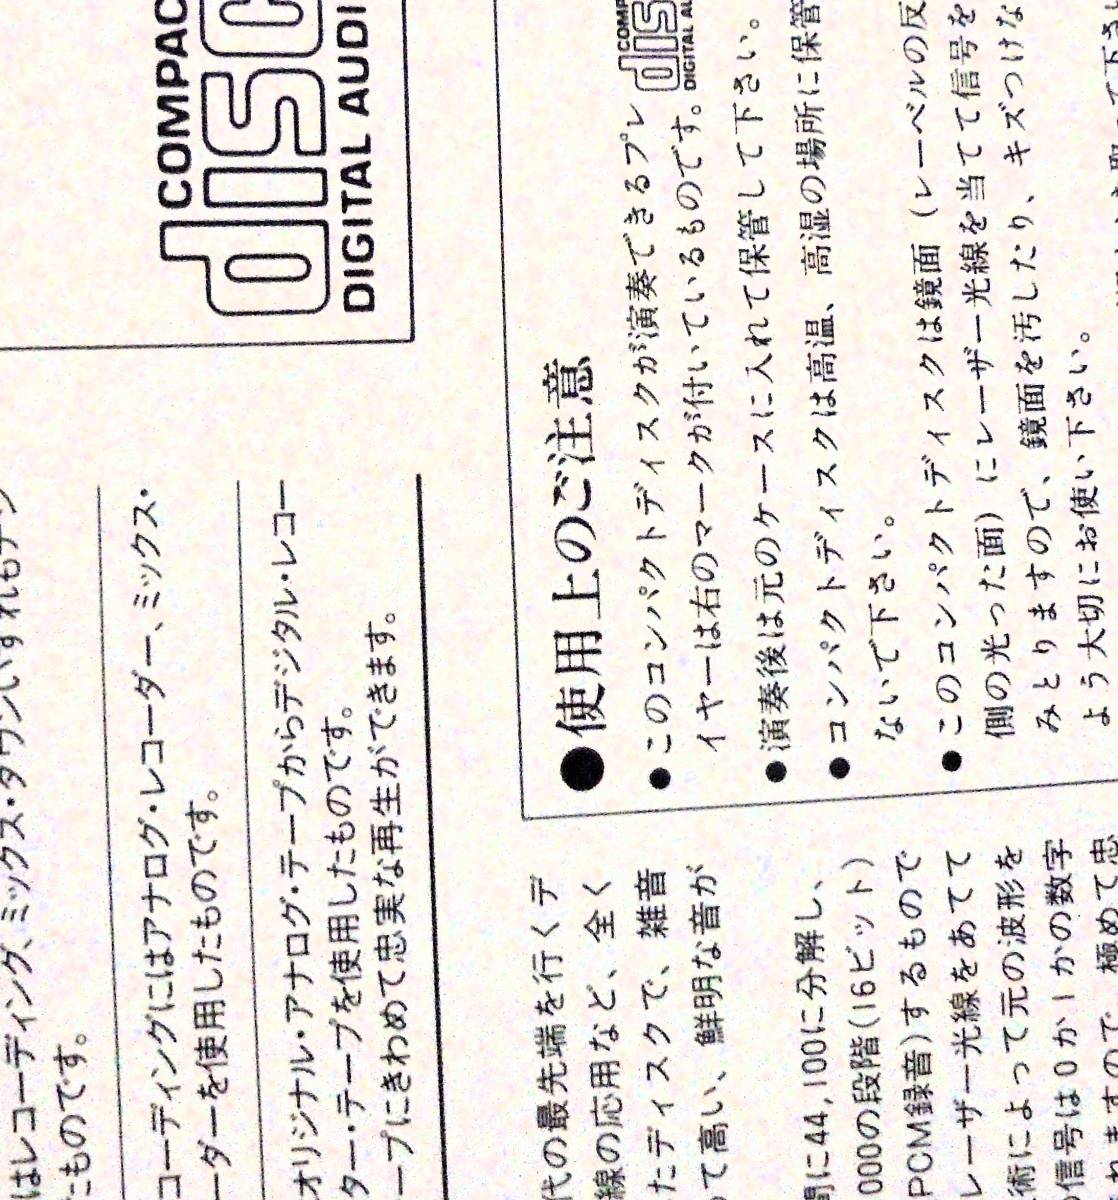 COMPAC
disc
DIGITAL AUDI
はレコーディング、ミックス・ダウンいずれもデジ
たものです。
コーディングにはアナログ・レコーダー、ミックス・
ーダーを使用したものです。
オリジナル・アナログ・テープからデジタル・レコー
ター・テープを使用したものです。
ープにきわめて忠実な再生ができます。
●使用上のご注意
●このコンパクトディスクが演奏できるプレ
イヤーは右のマークが付いているものです。
COMP
disc
DIGITAL AU
●演奏後は元のケースに入れて保管して下さい。
●コンパクトディスクは高温、高湿の場所に保管
ないで下さい。
●このコンパクトディスクは鏡面（レーベルの反
側の光った面）にレーザー光線を当てて信号を
みとりますので、鏡面を汚したり、キズつけな
よう大切にお使い下さい。
代の最先端を行くデ
線の応用など、全く
たディスクで、雑音
って高い、鮮明な音が
間に44,100に分解し、
000の段階(16ビット)
PCM録音)するもので
レーザー光線をあてて
術によって元の波形を
信号は0か1かの数字
ますので、極めて忠